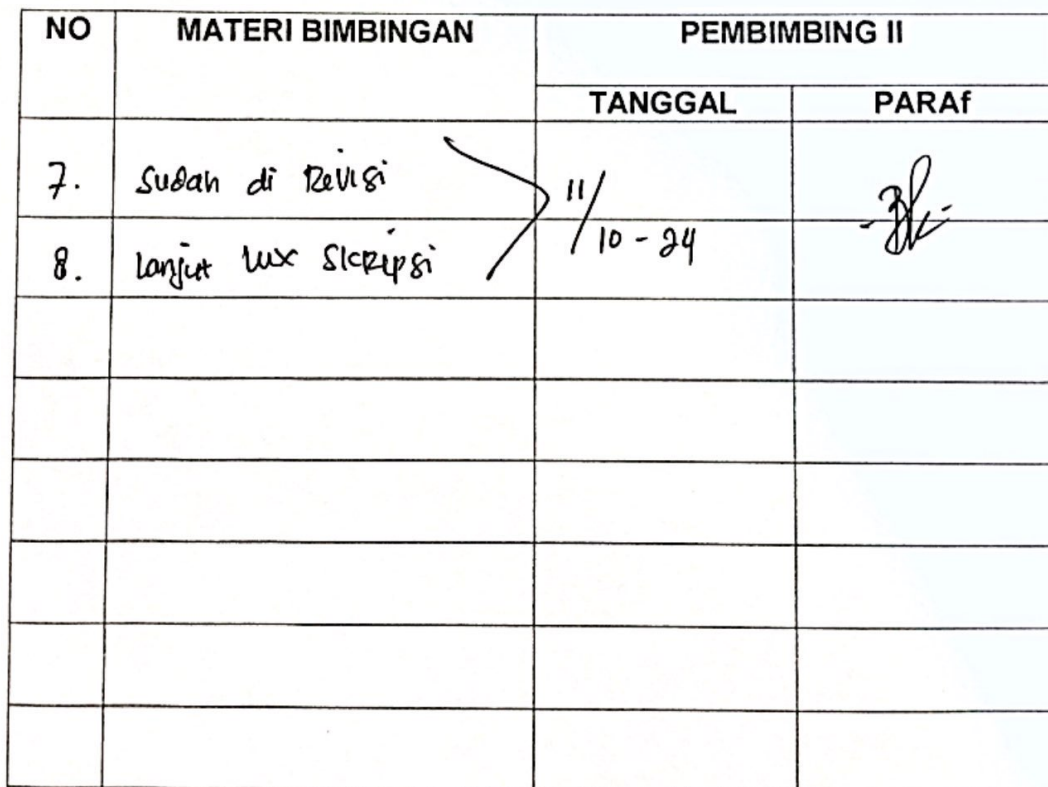 NO MATERI BIMBINGAN PEMBIMBING II
TANGGAL PARAf
7. Sudah di Revisi 11/
8. Lanjut Skripsi 10 - 24